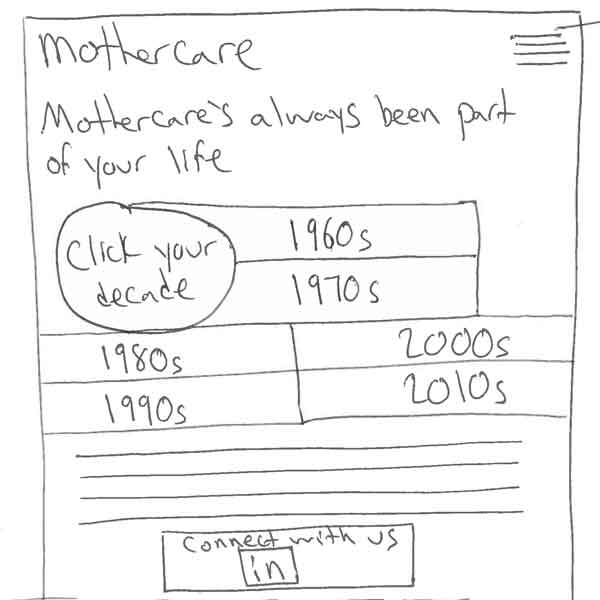 Mothercare
Mothercare's always been part
of your life
Click your
decade
1960s
1970s
1980s
1990s
2000s
2010s
Connect with us
in